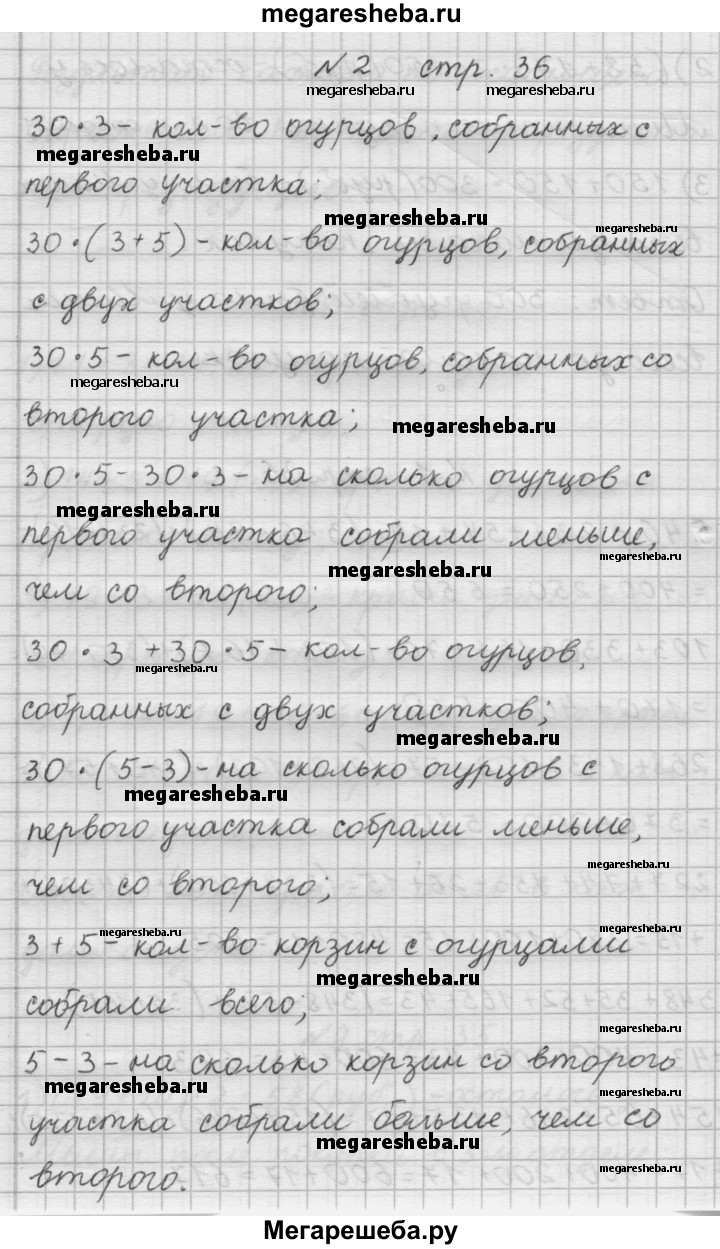 megaresheba.ru
N 2 стр. 36
megaresheba.ru megaresheba.ru
30 · 3 - кол-во огурцов, собранных с
megaresheba.ru
первого участка;
megaresheba.ru
megaresheba.ru
30 · (3 + 5) - кол-во огурцов, собранных
с двух участков;
30 · 5 - кол-во огурцов, собранных со
megaresheba.ru
второго участка;
megaresheba.ru
30 · 5 - 30 · 3 - на сколько огурцов с
megaresheba.ru
первого участка собрали меньше,
megaresheba.ru
megaresheba.ru
чем со второго;
30 · 3 + 30 · 5 - кол-во огурцов,
megaresheba.ru
собранных с двух участков;
megaresheba.ru
30 · (5 - 3) - на сколько огурцов с
megaresheba.ru
первого участка собрали меньше,
megaresheba.ru
чем со второго;
megaresheba.ru
3 + 5 - кол-во корзин с огурцами
megaresheba.ru
собрали всего;
megaresheba.ru
5 - 3 - на сколько корзин со второго
megaresheba.ru megaresheba.ru
участка собрали больше, чем со
megaresheba.ru
megaresheba.ru
второго.
Мегарешеба.ру